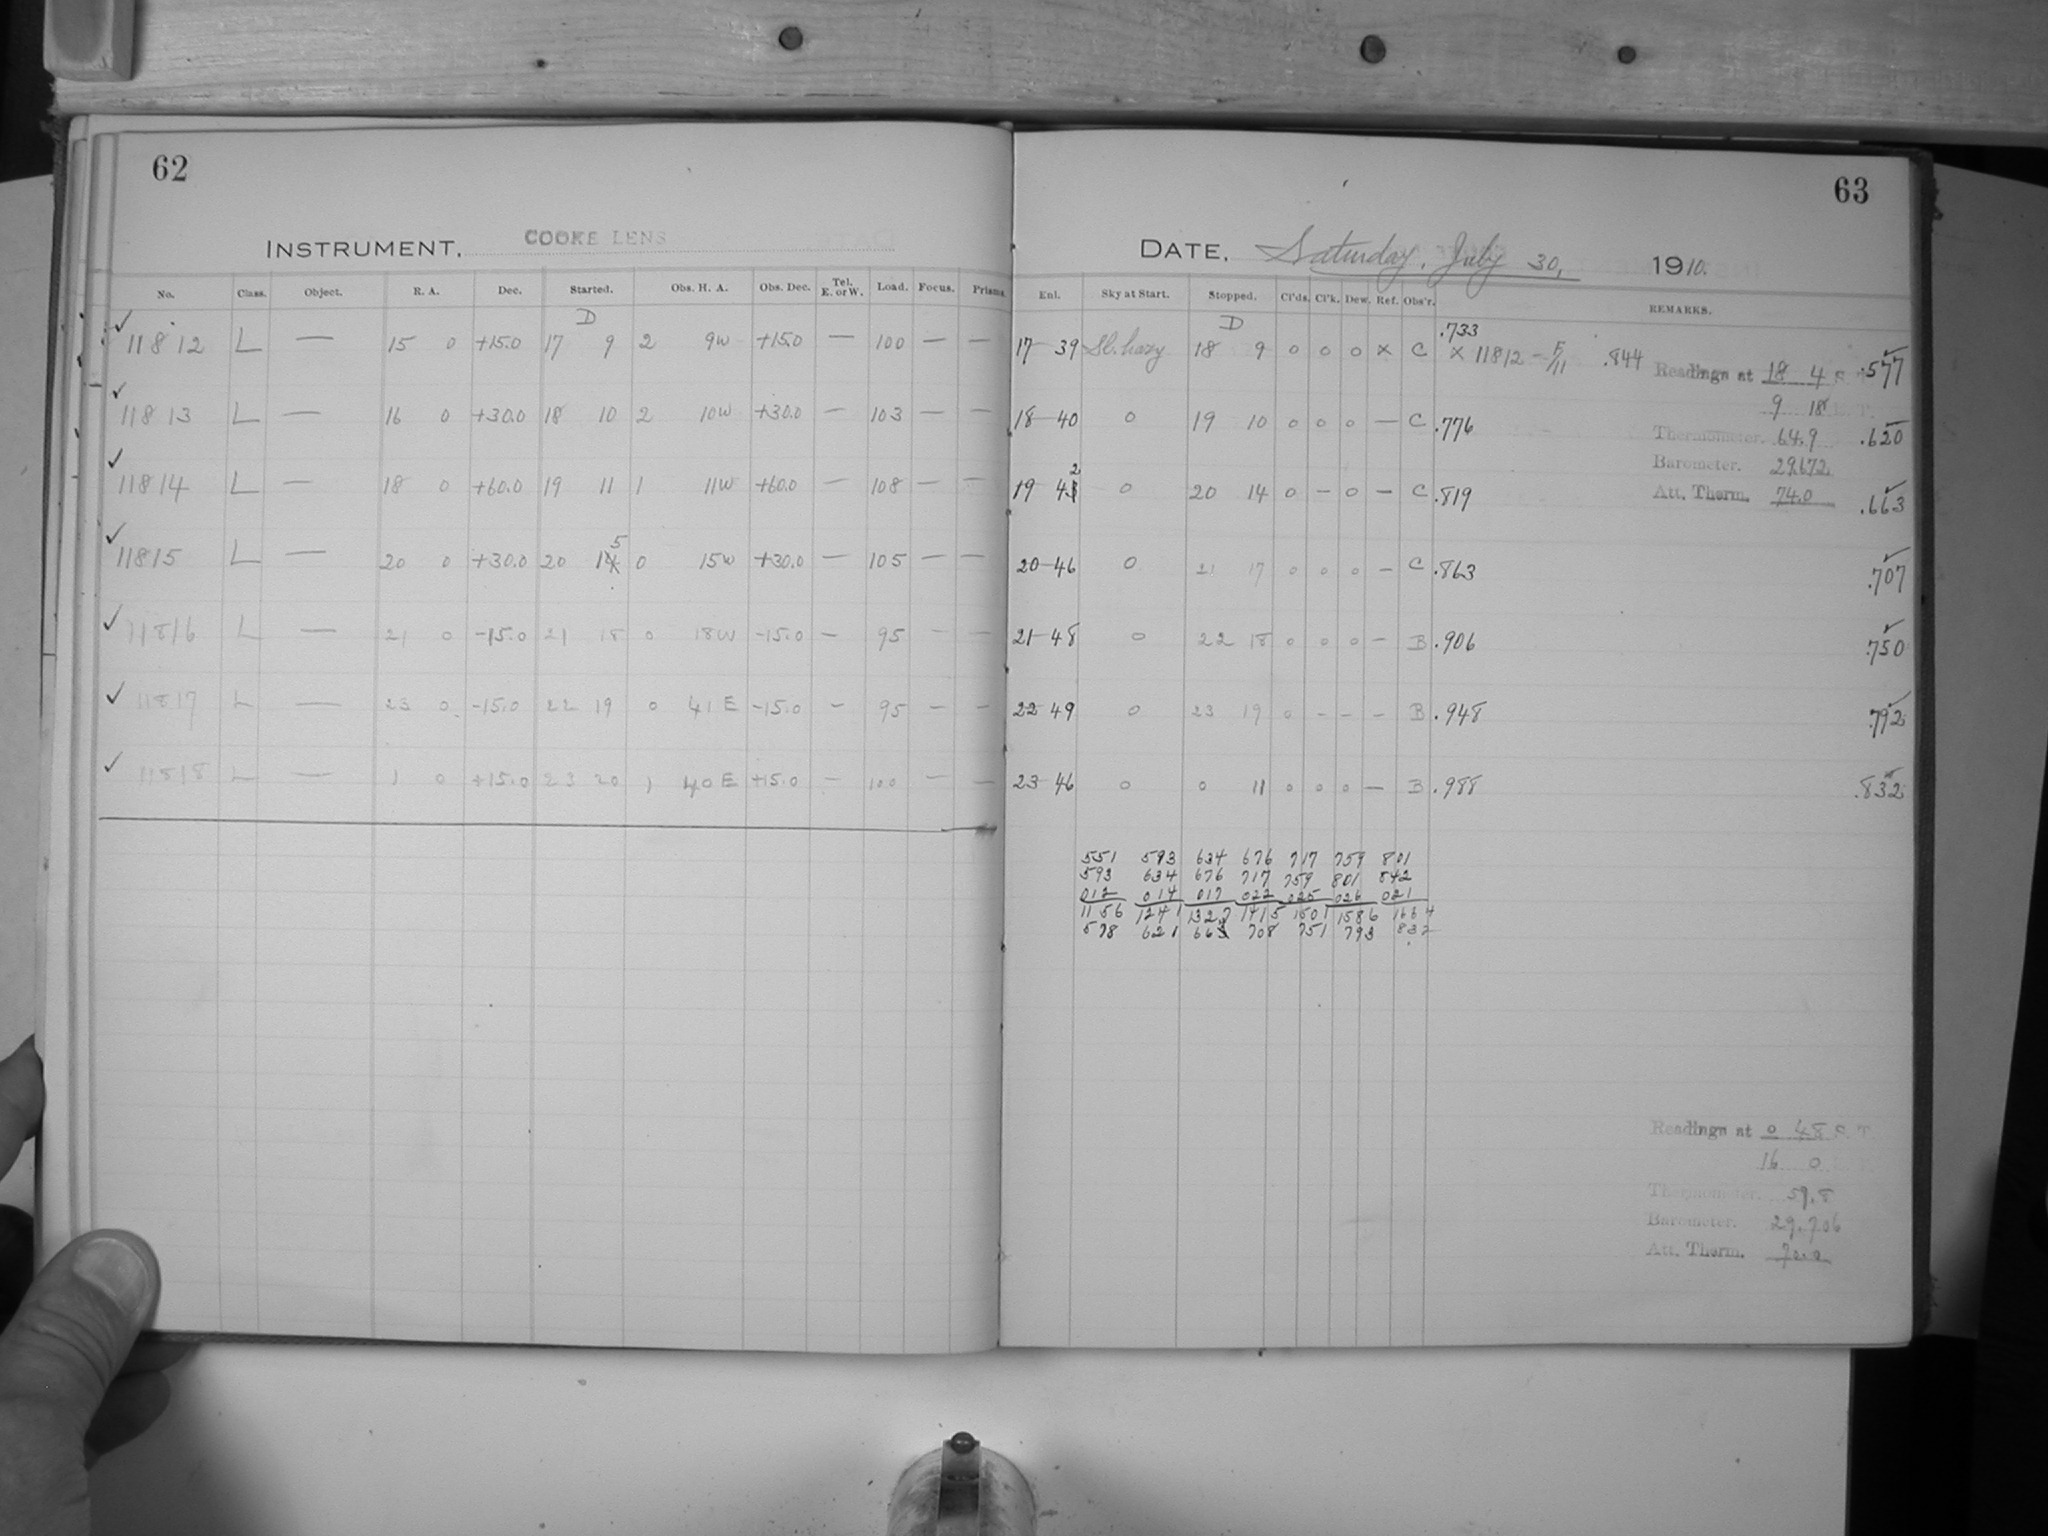 62
INSTRUMENT, COOKE LENS
No. Class. Object. R. A. Dec. Started. Obs. H. A. Obs. Dec. Tel. E. or W. Load. Focus. Prisms.
D
✓ 11812 L — 15 0 +15.0 17 9 2 9W +15.0 — 100 — —
✓ 11813 L — 16 0 +30.0 18 10 2 10W +30.0 — 103 — —
✓ 11814 L — 18 0 +60.0 19 11 1 11W +60.0 — 108 — —
✓ 11815 L — 20 0 +30.0 20 15 0 15W +30.0 — 105 — —
✓ 11816 L — 21 0 -15.0 21 18 0 18W -15.0 — 95 — —
✓ 11817 L — 23 0 -15.0 22 19 0 41E -15.0 — 95 — —
✓ 11818 L — 1 0 +15.0 23 20 1 40E +15.0 — 100 — —
63
DATE, Saturday, July 30, 1910.
Enl. Sky at Start. Stopped. Cl'ds. Cl'k. Dew. Ref. Obs'r. REMARKS.
D
17-39 Sl. hazy 18 9 0 0 0 × C .733 × 11812 - 5/11 .844 .577
18-40 0 19 10 0 0 0 — C .776 .620
19 42 0 20 14 0 — 0 — C .819 .663
20-46 0 21 17 0 0 0 — C .863 .707
21-48 0 22 18 0 0 0 — B .906 .750
22-49 0 23 19 0 — — — B .948 .792
23-46 0 0 11 0 0 0 — B .988 .832
Readings at 18 4 S. T.
9 18 E. T.
Thermometer. 64.9
Barometer. 29.672
Att. Therm. 74.0
551 593 634 676 717 759 801
593 634 676 717 759 801 842
012 014 017 022 025 026 021
1156 1241 1327 1415 1501 1586 1664
578 621 663 708 751 793 832
Readings at 0 48 S. T.
16 0
Thermometer. 59.8
Barometer. 29.706
Att. Therm. 70.0